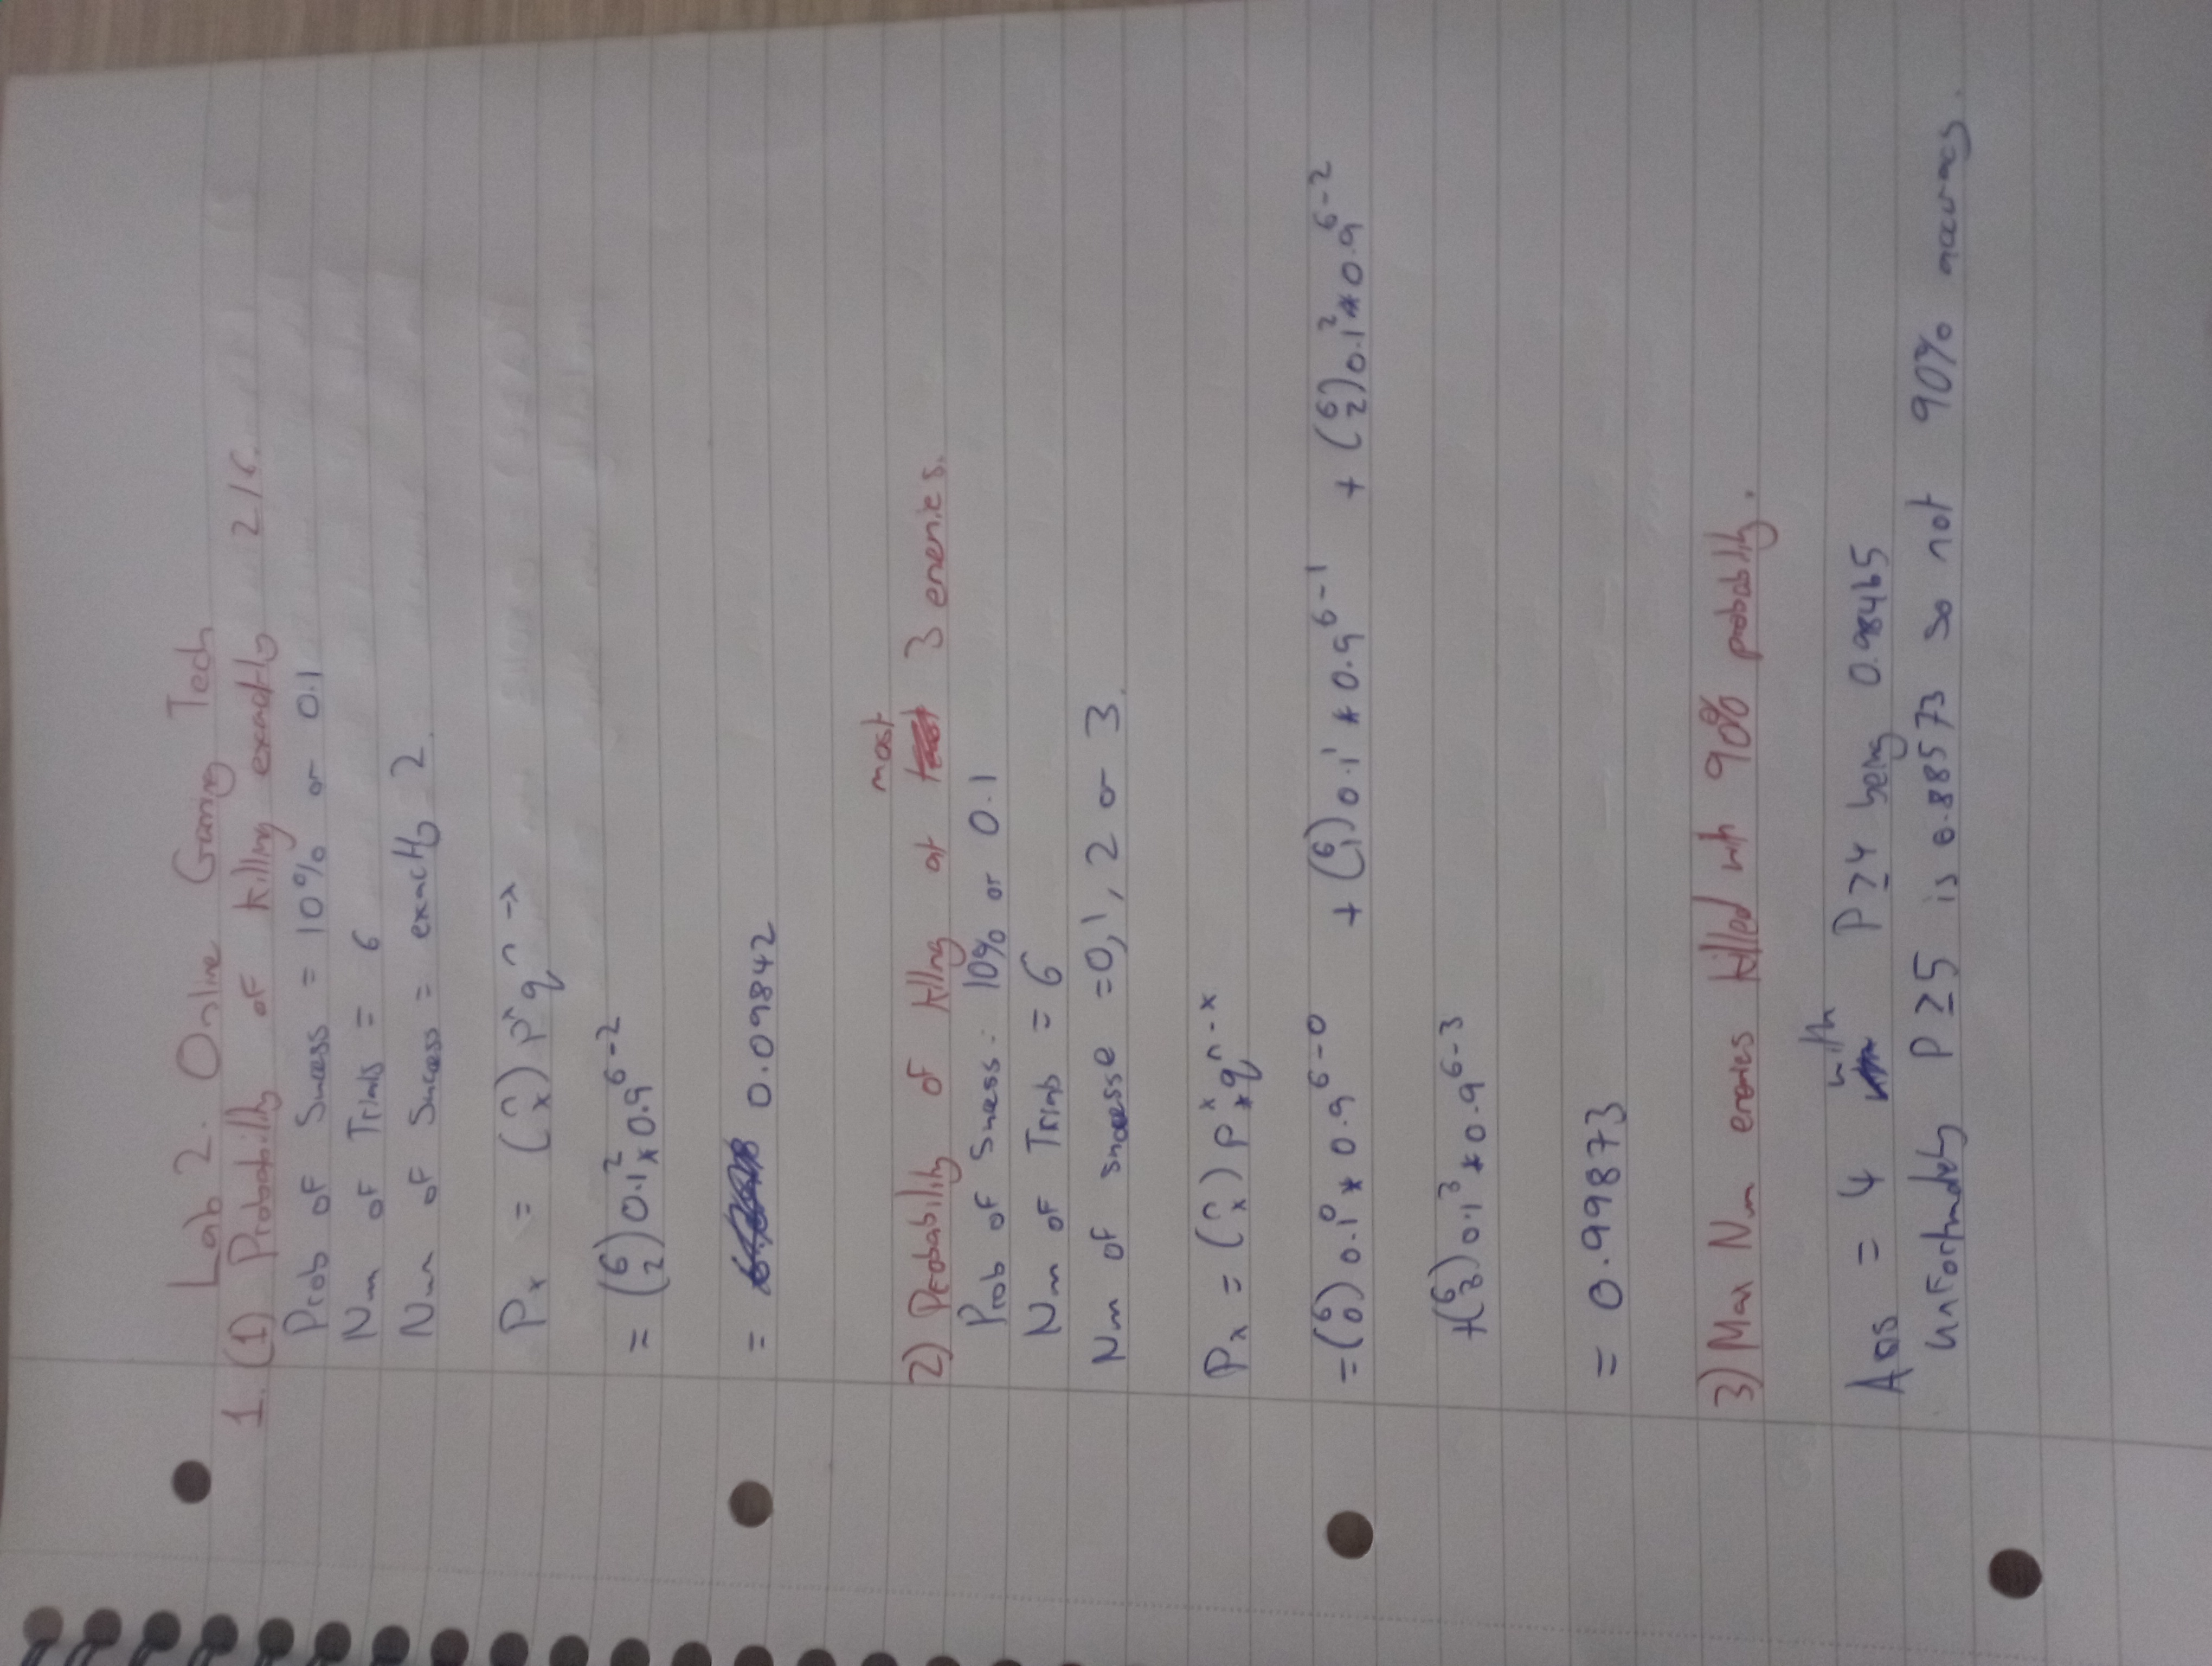 Lab 2. Online Gaming Tech
1. (1) Probability of killing exactly 2/6.
Prob of Sucess = 10% or 0.1
Num of Trials = 6
Num of Success = exactly 2.
Pₓ = (n x) pˣ qⁿ⁻ˣ
= (6 2) 0.1² * 0.9⁶⁻²
= 0.09842
most
2) Probability of killng at 3 enemies.
Prob of Sucess: 10% or 0.1
Num of Trials = 6
Num of successe = 0, 1, 2 or 3.
Pₓ = (n x) pˣ * qⁿ⁻ˣ
= (6 0) 0.1⁰ * 0.9⁶⁻⁰ + (6 1) 0.1¹ * 0.9⁶⁻¹ + (6 2) 0.1² * 0.9⁶⁻²
+ (6 3) 0.1³ * 0.9⁶⁻³
= 0.99873
3) Max Num enemies killed with 90% probability.
with
Ans = 4 P ≥ 4 being 0.98465
Unfortunately P ≥ 5 is 0.88573 so not 90% accuracy.